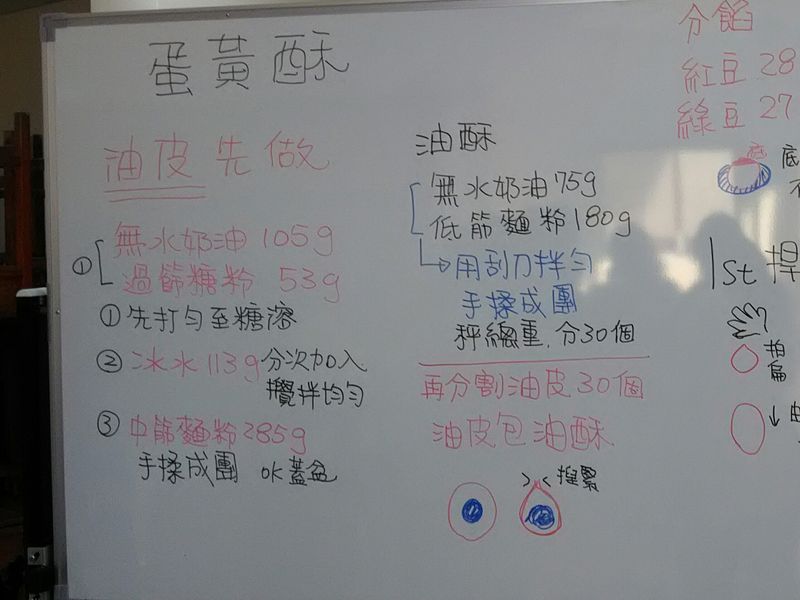 蛋黃酥
油皮先做
無水奶油 105g
① 過篩糖粉 53g
① 先打勻至糖溶
② 冰水 113g 分次加入
攪拌均勻
③ 中筋麵粉 285g
手揉成團 OK蓋盆
油酥
無水奶油 75g
低筋麵粉 180g
用刮刀拌勻
手揉成團
秤總重.分30個
再分割油皮30個
油皮包油酥
捏緊
分餡
紅豆 28
綠豆 27
底
1st 捍
拍
扁